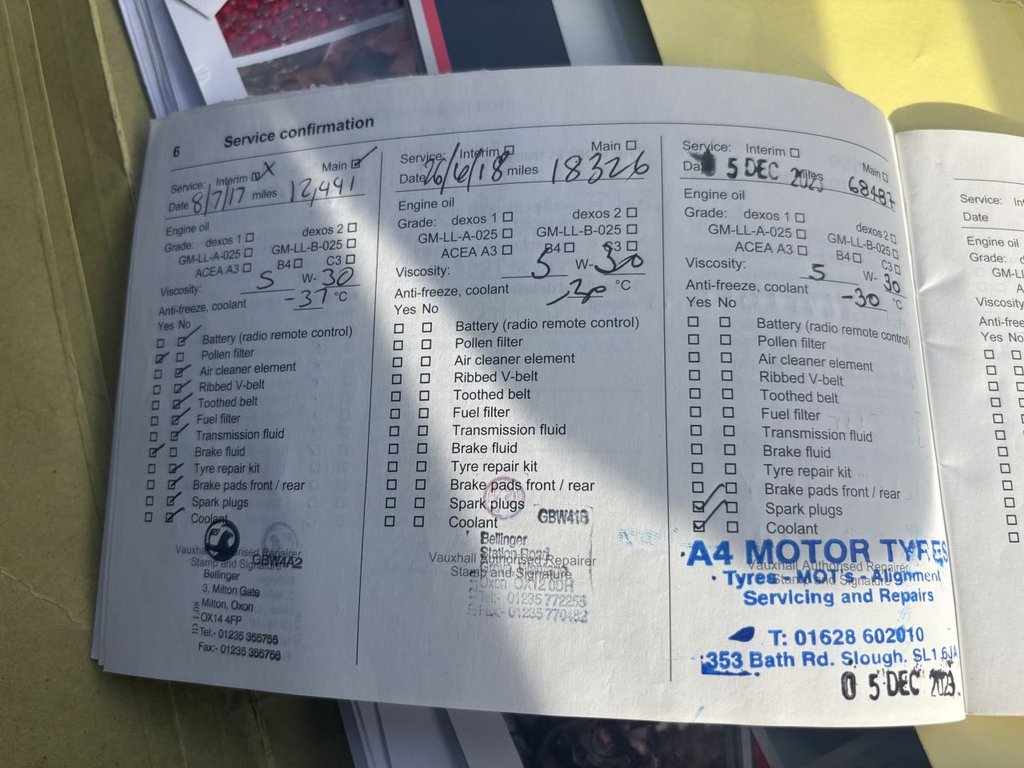 6 Service confirmation
Service: Interim X Main
Date 8/7/17 miles 12,491
Engine oil
Grade: dexos 1 dexos 2
GM-LL-A-025 GM-LL-B-025
ACEA A3 B4 C3
Viscosity: 5 W- 30
Anti-freeze, coolant -37 °C
Yes No
Battery (radio remote control)
Pollen filter
Air cleaner element
Ribbed V-belt
Toothed belt
Fuel filter
Transmission fluid
Brake fluid
Tyre repair kit
Brake pads front / rear
Spark plugs
Coolant
Vauxhall Authorised Repairer
Stamp and Signature
GBW4A2
Bellinger
3, Milton Gate
Milton, Oxon
OX14 4FP
Tel:- 01235 355766
Fax:- 01235 355766
Service: Interim Main
Date 26/6/18 miles 18326
Engine oil
Grade: dexos 1 dexos 2
GM-LL-A-025 GM-LL-B-025
ACEA A3 B4 C3
Viscosity: 5 W- 30
Anti-freeze, coolant °C
Yes No
Battery (radio remote control)
Pollen filter
Air cleaner element
Ribbed V-belt
Toothed belt
Fuel filter
Transmission fluid
Brake fluid
Tyre repair kit
Brake pads front / rear
Spark plugs
Coolant
GBW41S
Bellinger
Station Road
Vauxhall Authorised Repairer
Stamp and Signature
Tel:- 01235 772253
Fax:- 01235 770482
Service: Interim Main
Date 5 DEC 2023 miles 68487
Engine oil
Grade: dexos 1 dexos 2
GM-LL-A-025 GM-LL-B-025
ACEA A3 B4 C3
Viscosity: 5 W- 30
Anti-freeze, coolant -30 °C
Yes No
Battery (radio remote control)
Pollen filter
Air cleaner element
Ribbed V-belt
Toothed belt
Fuel filter
Transmission fluid
Brake fluid
Tyre repair kit
Brake pads front / rear
Spark plugs
Coolant
A4 MOTOR TYRES
Vauxhall Authorised Repairer
Tyres - MOT's - Alignment
Stamp and Signature
Servicing and Repairs
T: 01628 602010
353 Bath Rd. Slough. SL1 6JA
0 5 DEC 2023
Service:
Date
Engine oil
Grade:
Viscosity
Yes No